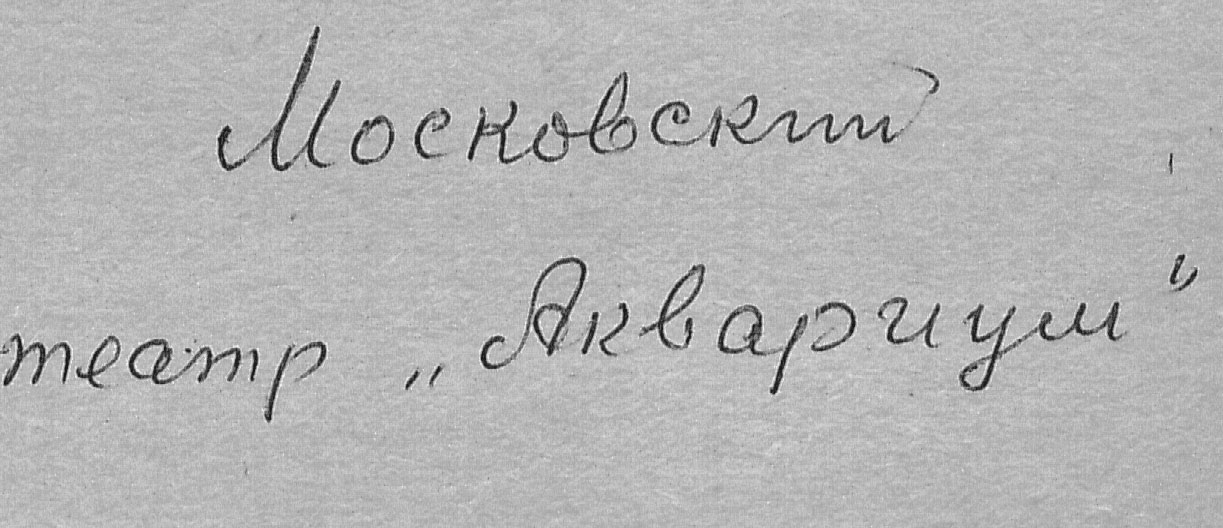 Московский
театр „Аквариум“